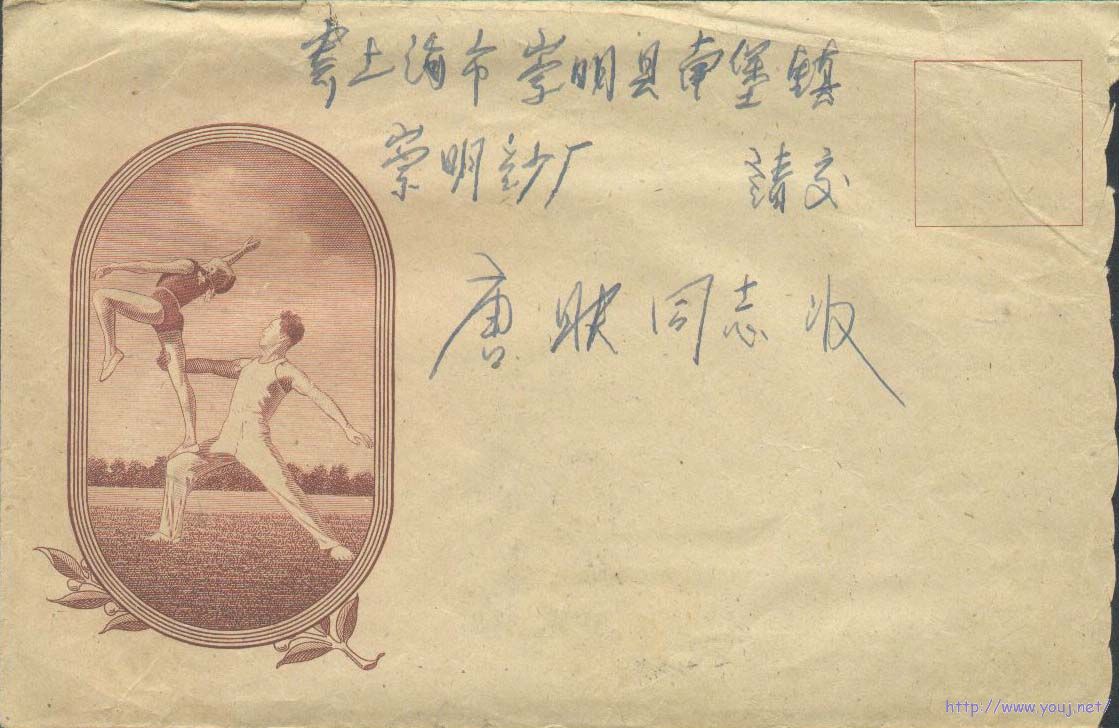 上海市崇明县南堡镇
崇明纱厂 请交
唐 同志 收
http://www.youj.net/